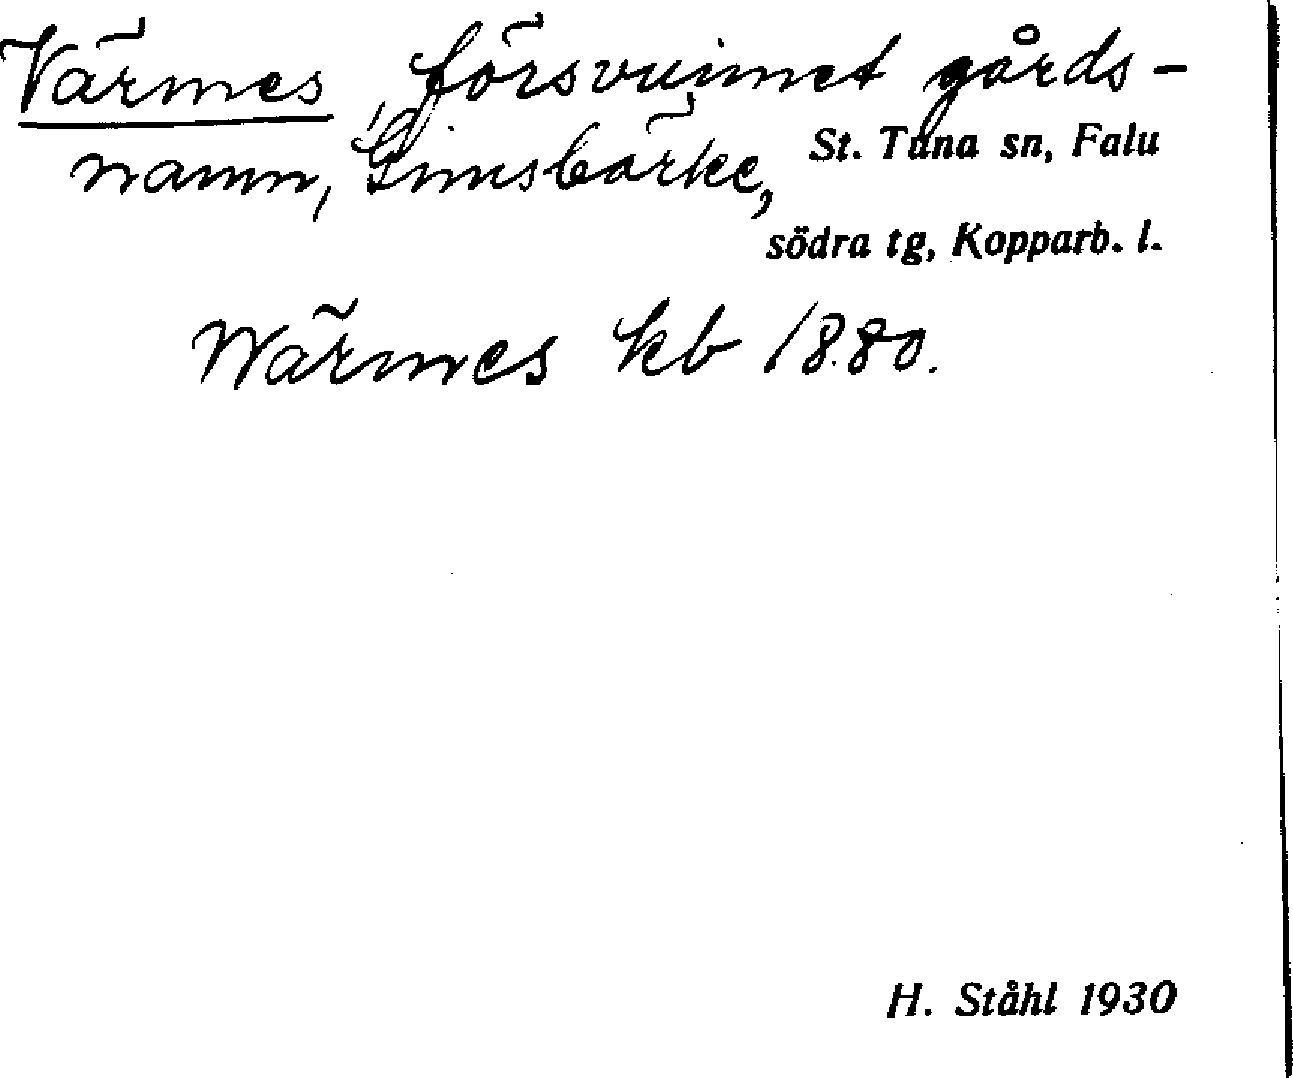 Värmes, försvunnet gårds-
namn, Ginsbärke, St. Tuna sn, Falu
södra tg, Kopparb. l.
Wärmes kb 1880.
H. Ståhl 1930